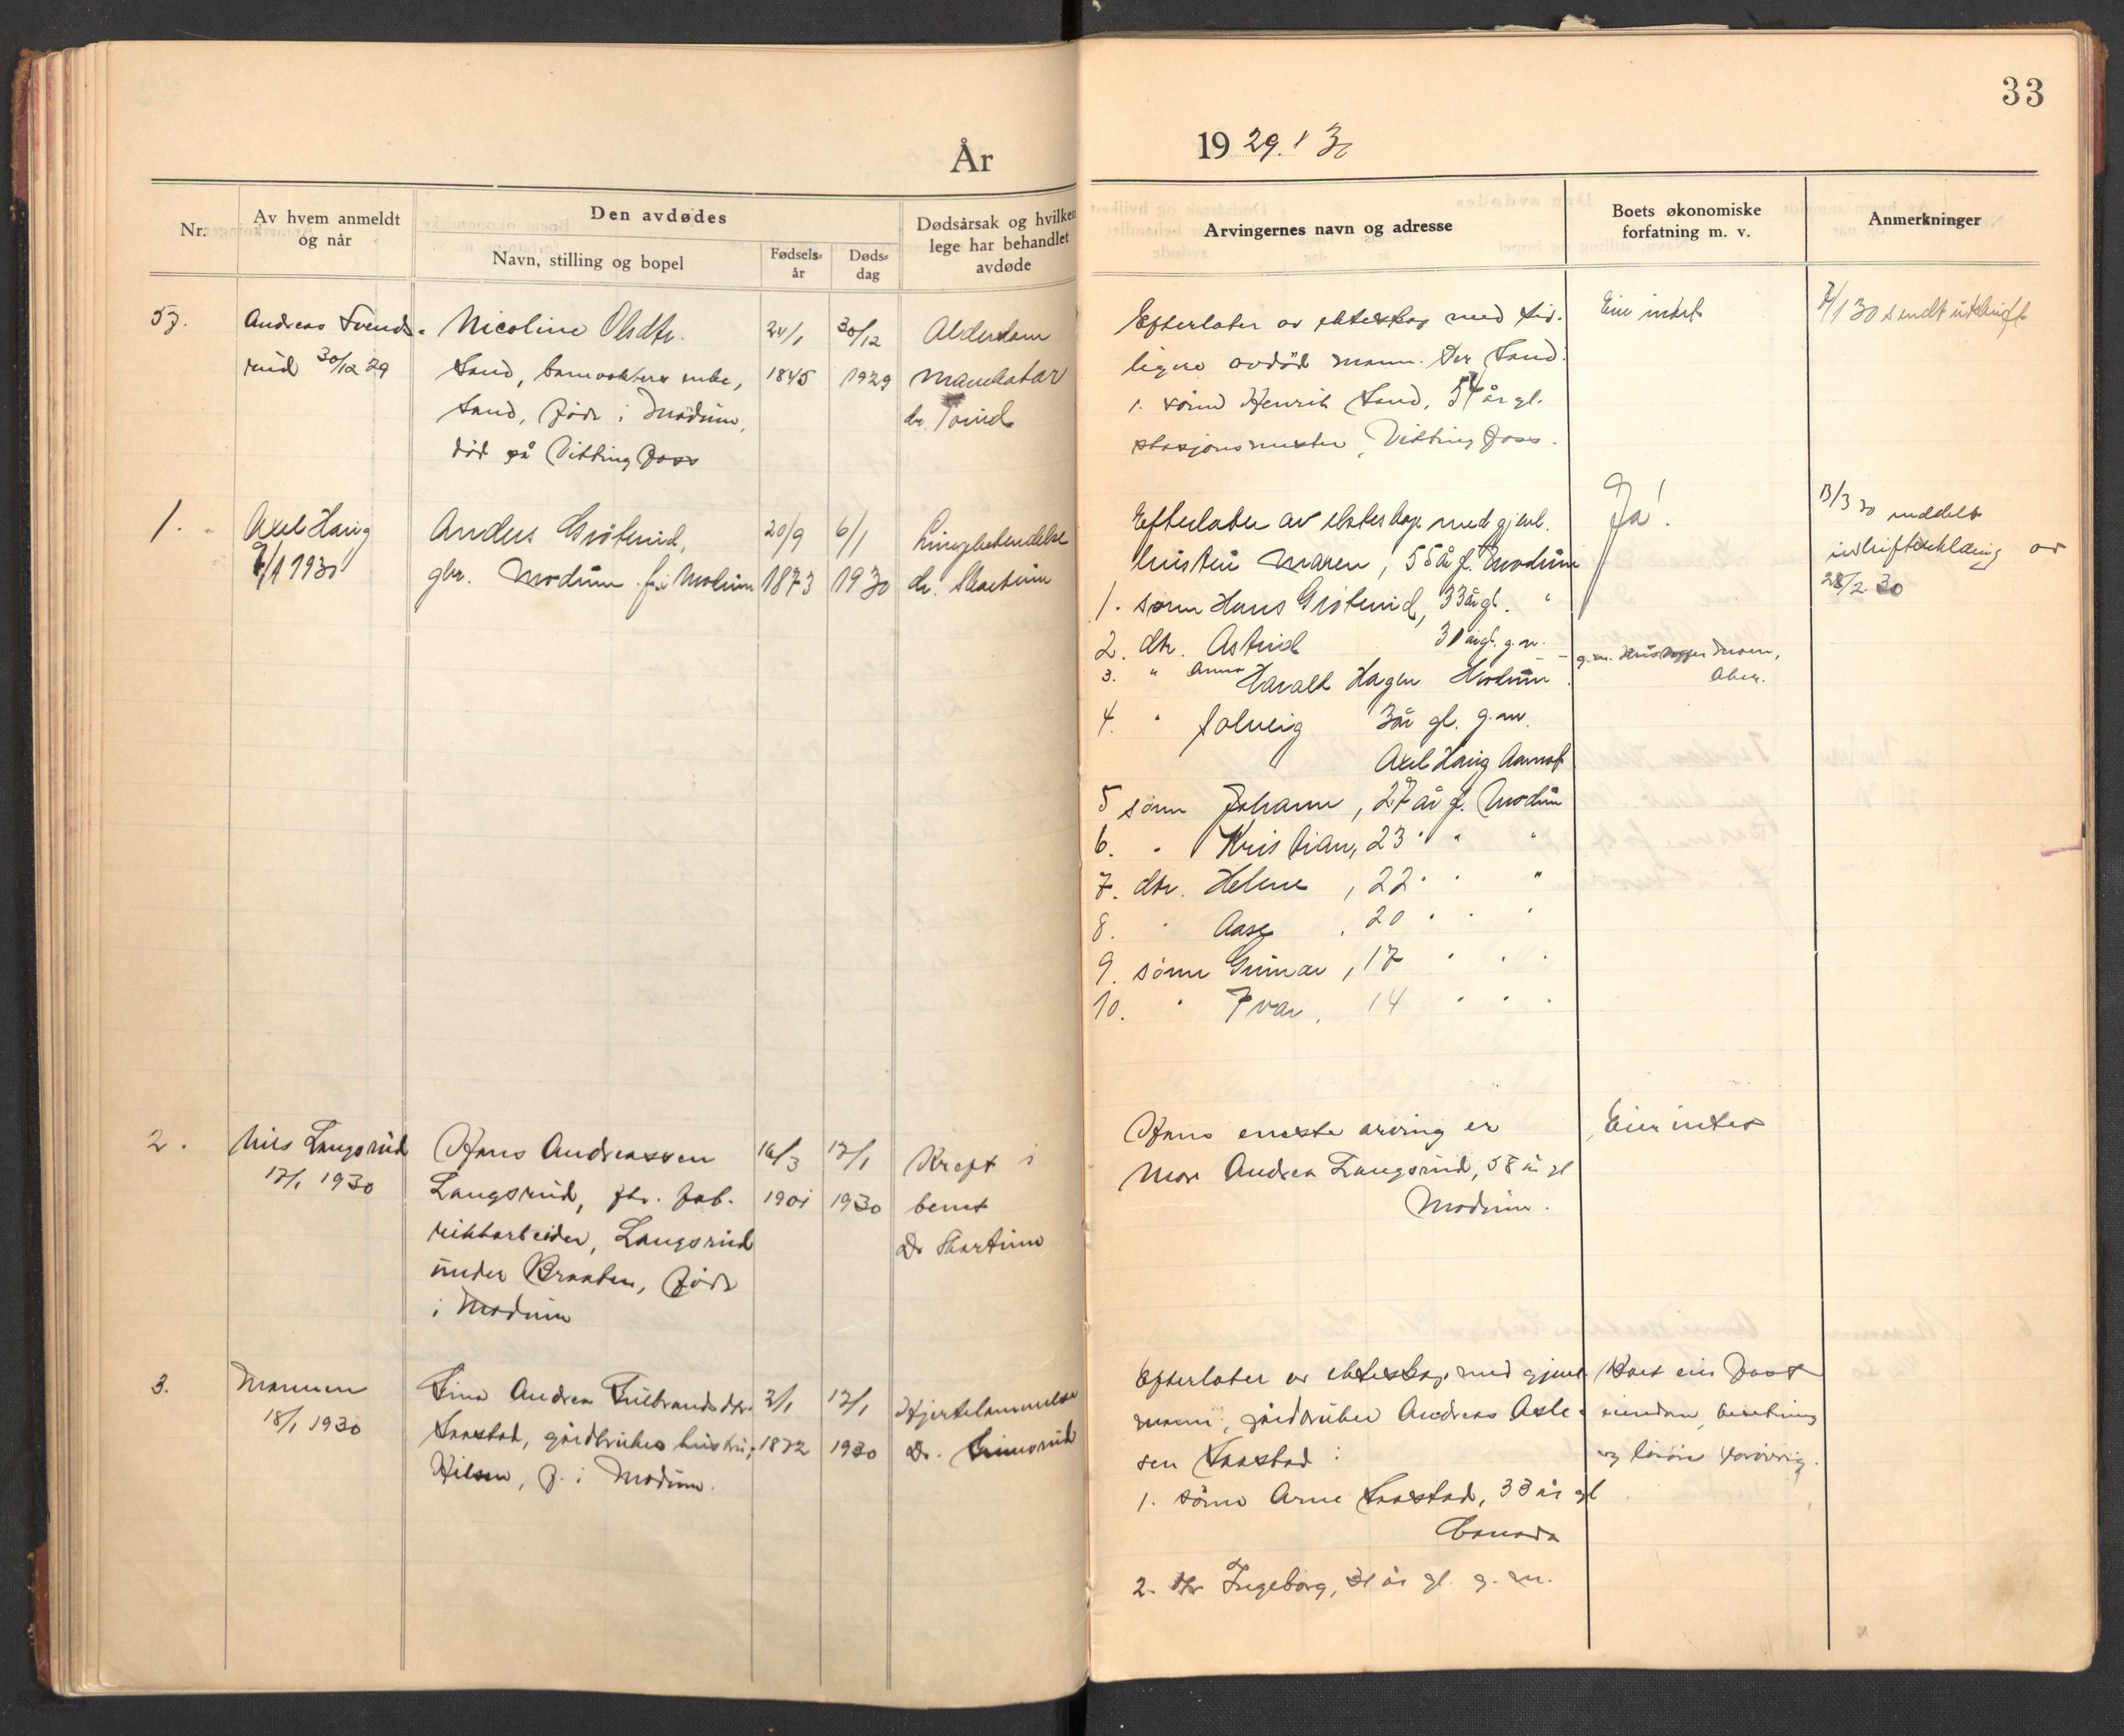 33
År
1929. / 30
Nr.
Av hvem anmeldt
og når
Den avdødes
Navn, stilling og bopel
Fødsels-
år
Døds-
dag
Dødsårsak og hvilken
lege har behandlet
avdøde
Arvingernes navn og adresse
Boets økonomiske
forfatning m. v.
Anmerkninger
57.
Andreas Svends-
rud 30/12 29
Nicoline Olsdtr.
Sand, banevokters enke,
Sand, født i Modum,
død på Vittingfoss
20/1
1845
30/12
1929
Alderdom
Marekatar
dr.
Efterlater av ekteskap med tid-
ligere avdød mann. Per Sand:
1. sønn Henrik Sand, 54 år gl.
stasjonsmester, Vittingfoss.
Eier intet
7/1 30 sendt utskrift
1.
Axel Haug
9/1 1930
Anders Grøterud,
gbr. Modum f. i Modum
20/9
1873
6/1
1930
Lungebetendelse
dr. Skartum
Efterlater av ekteskap med gjenl.
hustru Maren, 55 år f. Modum
1. sønn Hans Grøterud, 33 år gl. "
2. dtr. Astrid 31 år gl. g.m.
3. " Anna
Harald Hagen Modum
4. " Solveig 3 år gl. g.m.
Axel Haug Aamot
5 sønn Johann, 27 år f. Modum
6. " Kristian, 23 " " "
7. dtr. Helene, 22 " " "
8. " Aase, 20 " " "
9. sønn Gunnar, 17 " " "
10. " Ivar, 14 " " "
Ja!
g.m. Moen,
13/3 30 meddelt
av
28/2 30
2.
Nils Langsrud
17/1 1930
Hans Andreassen
Langsrud, fhv. fab-
rikkarbeider, Langsrud
under Braaten, født
i Modum
16/3
1901
17/1
1930
Kreft i
benet
Dr Skartum
Hans eneste arving er
mor Andrea Langsrud, 58 år gl
Modum.
Eier intet
3.
Mannen
18/1 1930
Lina Andrea Gulbrandsdtr.
Saastad, gårdbrukers hustru,
Hilsen, f. i Modum.
2/1
1872
17/1
1930
Hjertelammelse
Dr.
Efterlater av ekteskap med gjenl.
mann, gårdbruker Andreas Asle-
sen Saastad:
1. sønn Arne Saastad, 33 år gl
Canada
2. dtr Ingeborg, 31 år gl. g. m.
Boet eier fast
eiendom, besetning
og løsøre forøvrig.